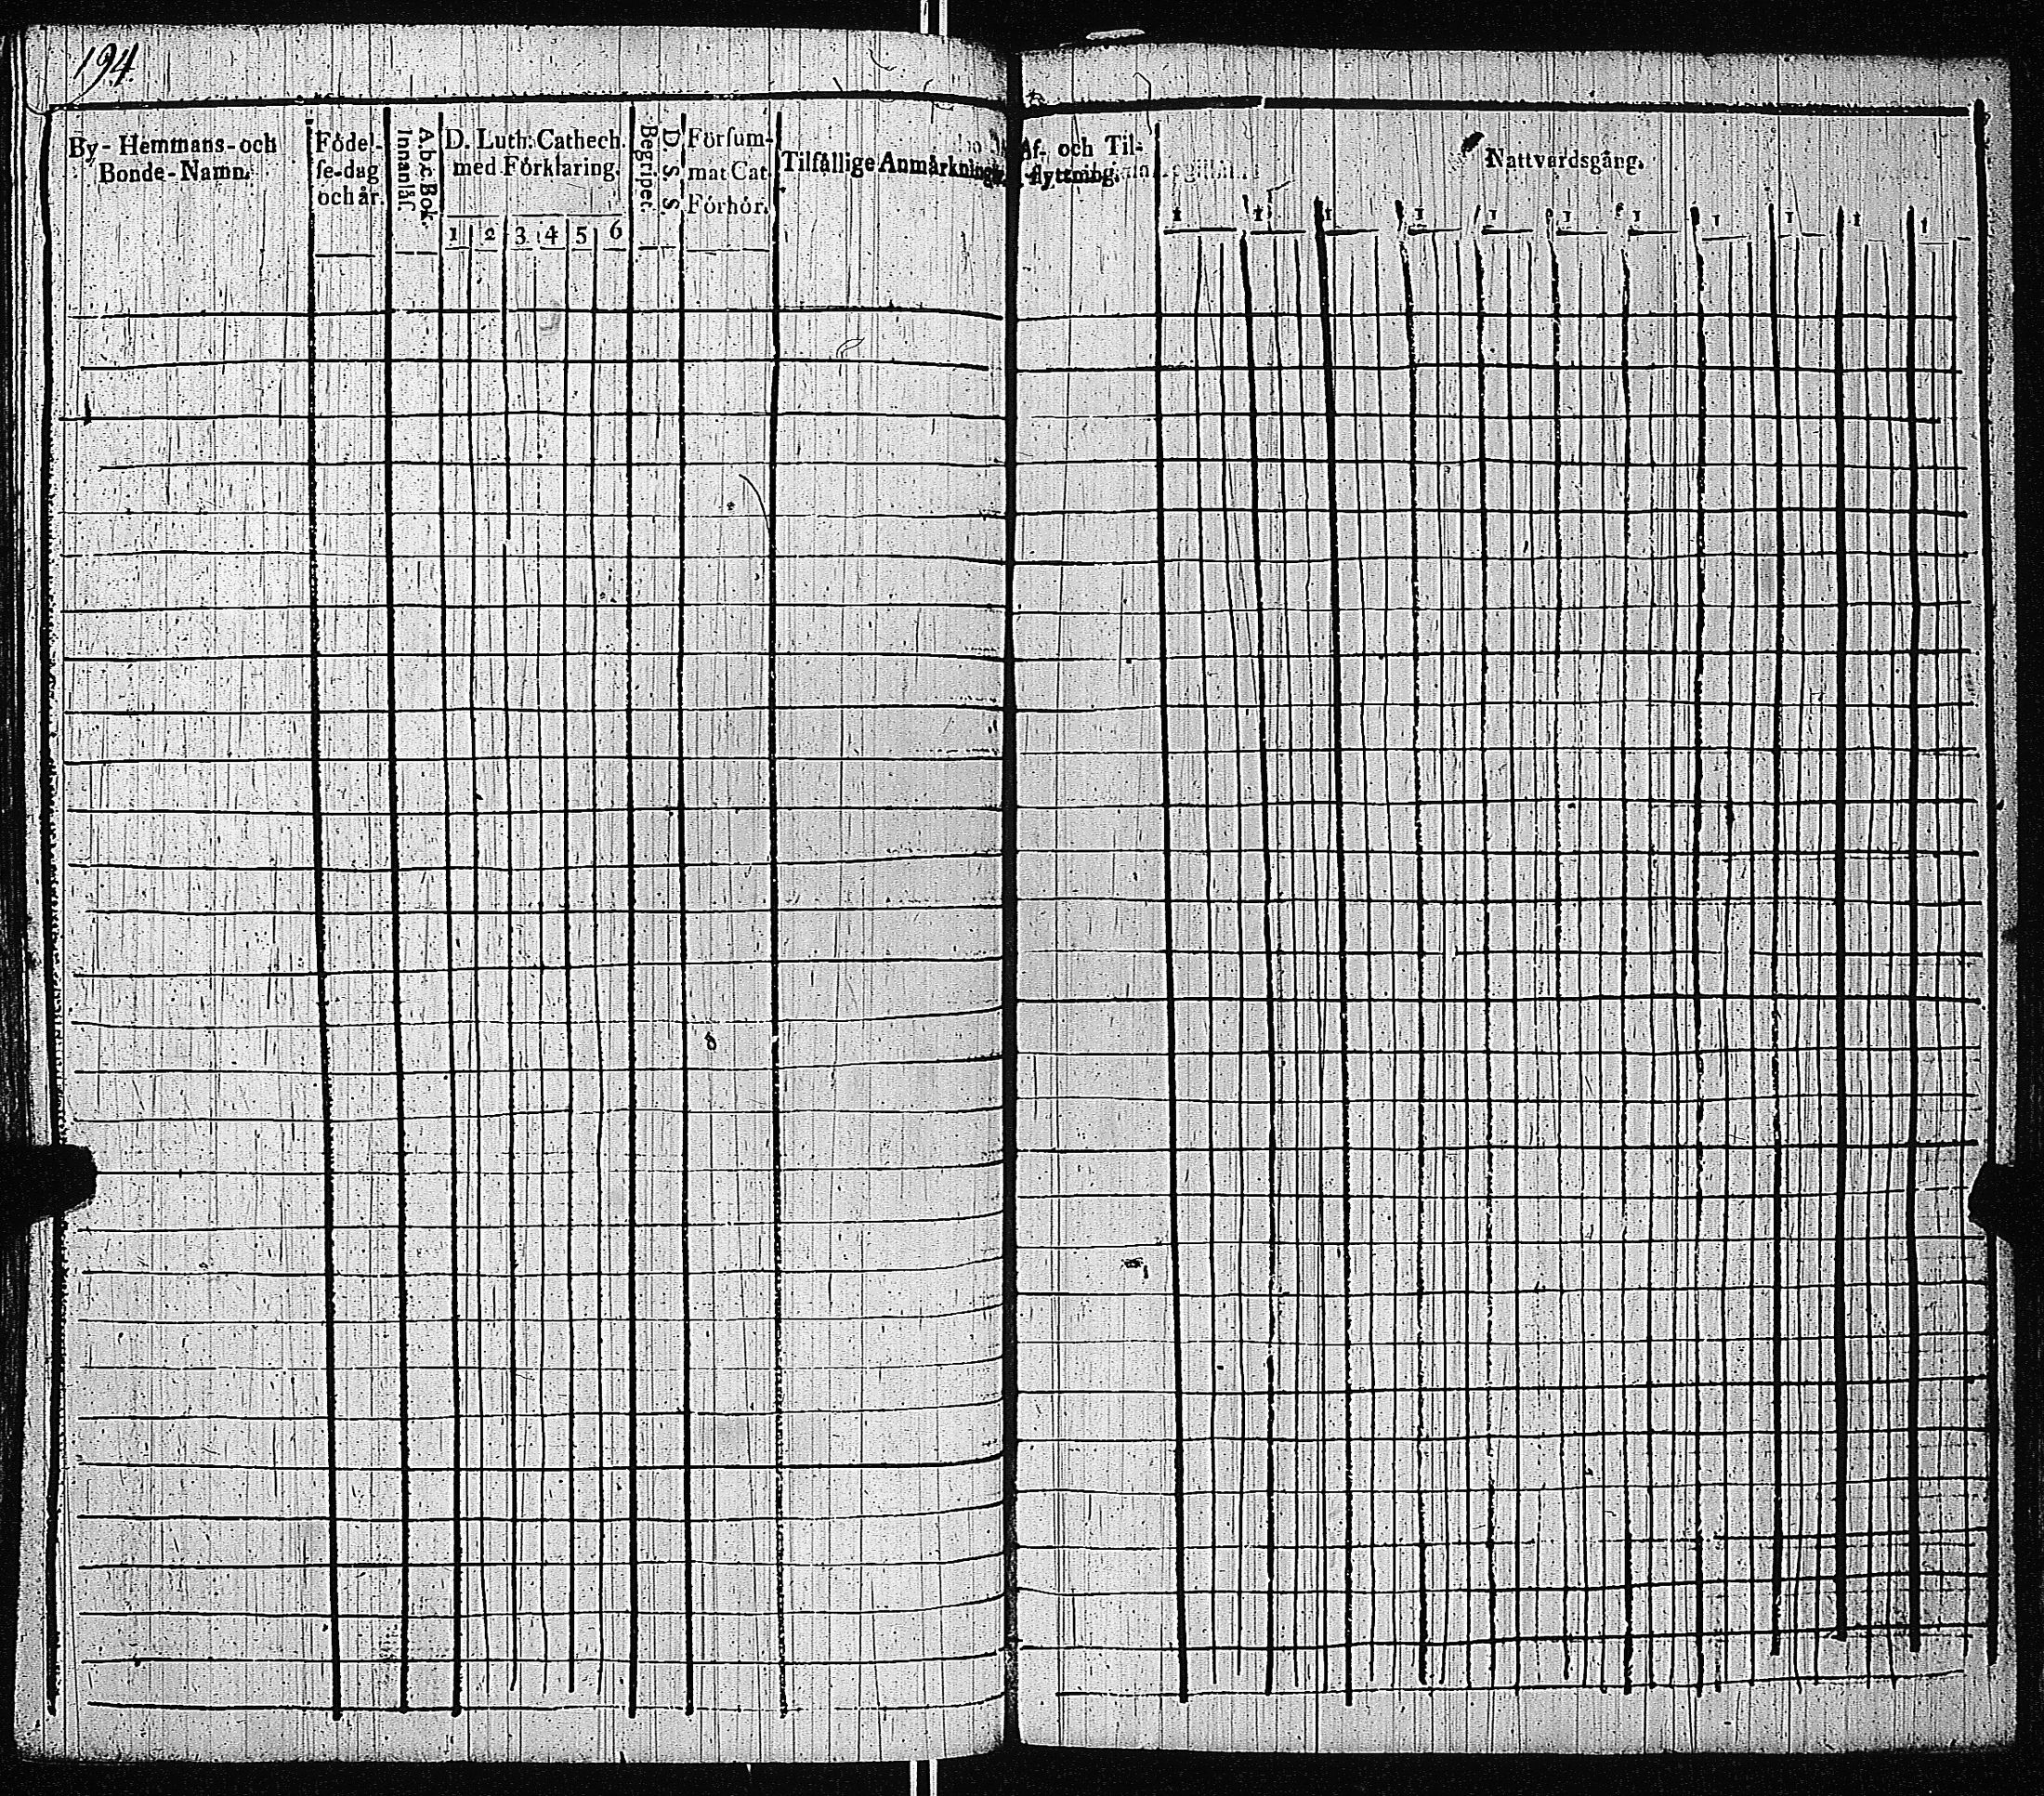 194.
By-Hemmans-och
Bonde-Namn.
Födel-
se-dag
och år.
A.b.c.Bok.
Innanläs.
D. Luth: Cathech.
med Förklaring.
1 2 3 4 5 6
D. S. S. S.
Begriper.
Försum-
mat Cat.
Förhör.
Tilfällige Anmärkningar
Af- och Til-
flyttning.
Nattvardsgång.
1 1 1 1 1 1 1 1 1 1 1